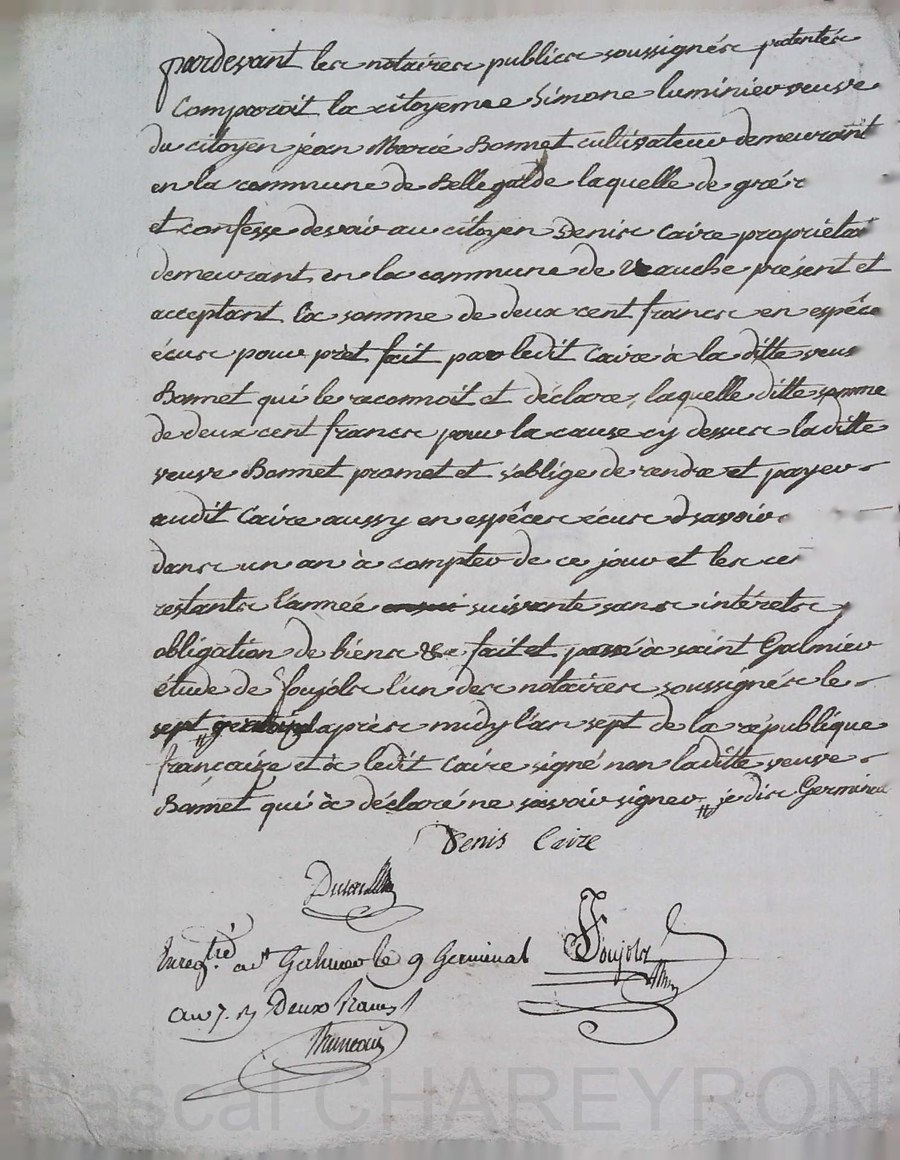 pardevant les notaires publics soussignés patentés
Comparoit la citoyenne Simone luminier veuve
du citoyen jean Marié Bonnet cultivateur demeurant
en la commune de Bellegarde laquelle de gré
et confesse devoir au citoyen Denis Caire propriétai
demeurant en la commune de Veauche présent et
acceptant la somme de deux cent francs en espèce
écus pour prèt fait par ledit Caire à la ditte veuv
Bonnet qui le reconnoit et déclare, laquelle ditte somme
de deux cent francs pour la cause cy dessus laditte
veuve Bonnet promet et s'oblige de rendre et payer
audit Caire aussy en espèces écus savoir
dans un an à compter de ce jour et les
restants l'année suivante sans intérets
obligation de biens &c fait et passé à saint Galmier
étude de foujols l'un des notaires soussignés le
sept après midy l'an sept de la république
françaize et à ledit Caire signé non laditte veuve
Bonnet qui à déclaré ne savoir signer // je dis Germinal
Denis Caire
Foujols
Enregtré a st Galmier le 9 Germinal
an 7. R Deux francs
Pascal CHAREYRON